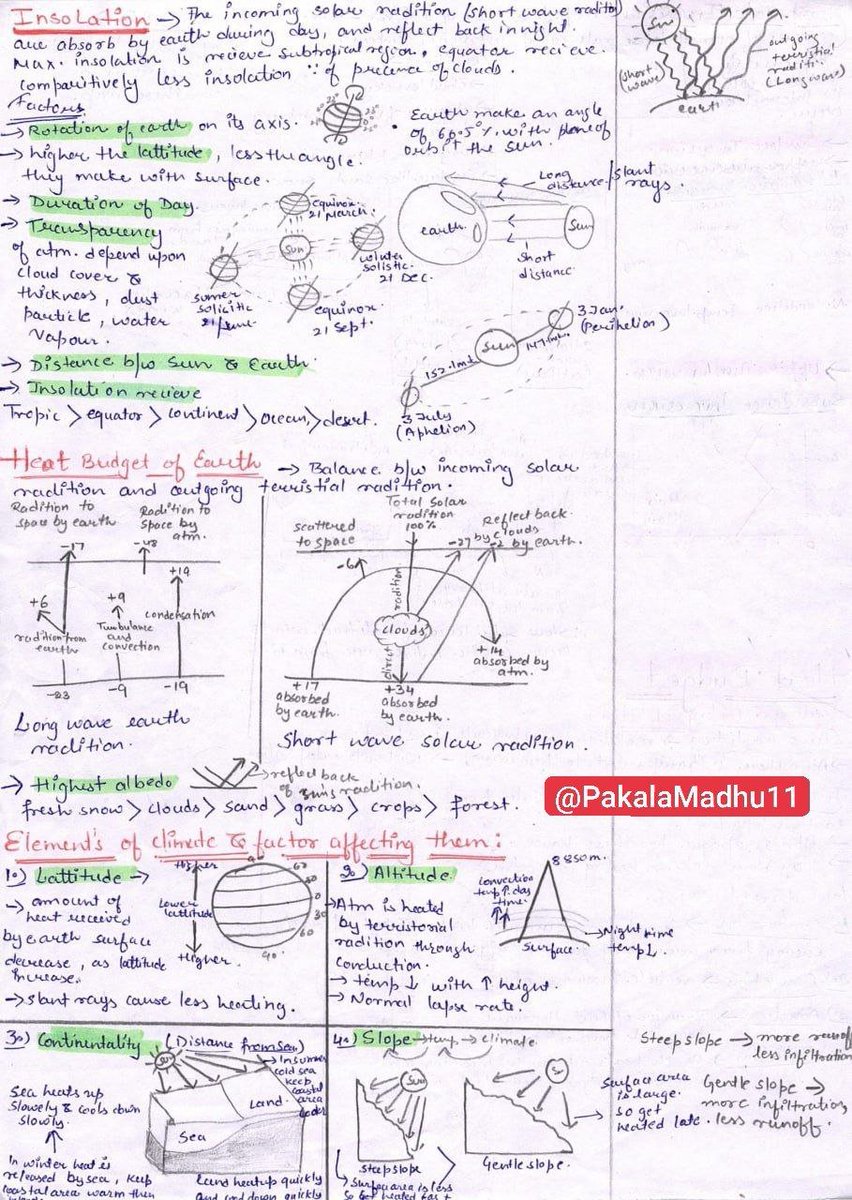 Insolation → The incoming solar radition (short wave raditon)
are absorb by earth during day, and reflect back in night.
Max. insolation is recieve subtropical region, equator recieve
comparitively less insolation ∵ of precence of clouds.
Sun
(short wave)
outgoing terristial raditi: (Long wave)
earth
Factors:
→ Rotation of earth on its axis.
• Earth make an angle
of 66.5°/. with plane of
orbit the sun.
→ higher the lattitude, less the angle.
they make with surface.
→ Duration of Day
→ Transparency
of atm. depend upon
cloud cover &
thickness, dust
particle, water
vapour.
equinox
21 March.
Sun
winter
solistic.
21 Dec.
sumer
solicitic
21 June.
equinox
21 Sept.
Long distance/slant
rays.
earth.
Sun
short
distance.
3 Jan.
(Perihelion)
Sun
152.1mt
147.1mt.
3 July
(Aphelion)
→ Distance b/w Sun & Earth.
→ Insolation recieve
Tropic > equator > continent > ocean > desert.
Heat Budget of Earth → Balance b/w incoming solar
radition and outgoing terristial radition.
Radition to
space by earth
-17
Radition to
space by
atm.
-48
+19
+6
radition from
earth
+9
Turbulance
and
convection
condensation
-23
-9
-19
Long wave earth
radition.
scattered
to space
-6
Total solar
radition
100%
Reflect back.
-27 by clouds
-2 by earth.
radition
clouds
direct
+14
absorbed by
atm.
+17
absorbed
by earth.
+34
absorbed
by earth.
Short wave solar radition.
→ Highest albedo
→ reflect back
of suns radition.
fresh snow > clouds > sand > grass > crops > forest.
@PakalaMadhu11
Element's of climate & factor affecting them:
1.) Lattitude →
→ amount of
heat received
by earth surface
decrease, as lattitude
increase.
→ slant rays cause less heating.
Higher
Lower
lattitude
Higher.
90
60
30
0
30
60
90
2.) Altitude
→ Atm is heated
by terristorial
radition through
conduction.
→ temp ↓ with ↑ height.
→ Normal lapse rate
8850m.
convection
temp↑ day
time
surface
→ Night time
temp↓
3.) Continentality (Distance from sea)
Sea heats up
slowely & cools down
slowly.
In winter heat is
released by sea, keep
coastal area warm then
Sun
→ In summer
cold sea
keep
coastal
area
cooler
Land
Sea
Land heatup quickly
and cool down quickly
4.) Slope → temp → climate
Sun
Steep slope
→ Surface area is less
so get heated fast
Gentle slope.
Surface area
is large.
so get
heated late.
Steep slope → more runoff
less infiltration
Gentle slope →
more infiltration,
less runoff.